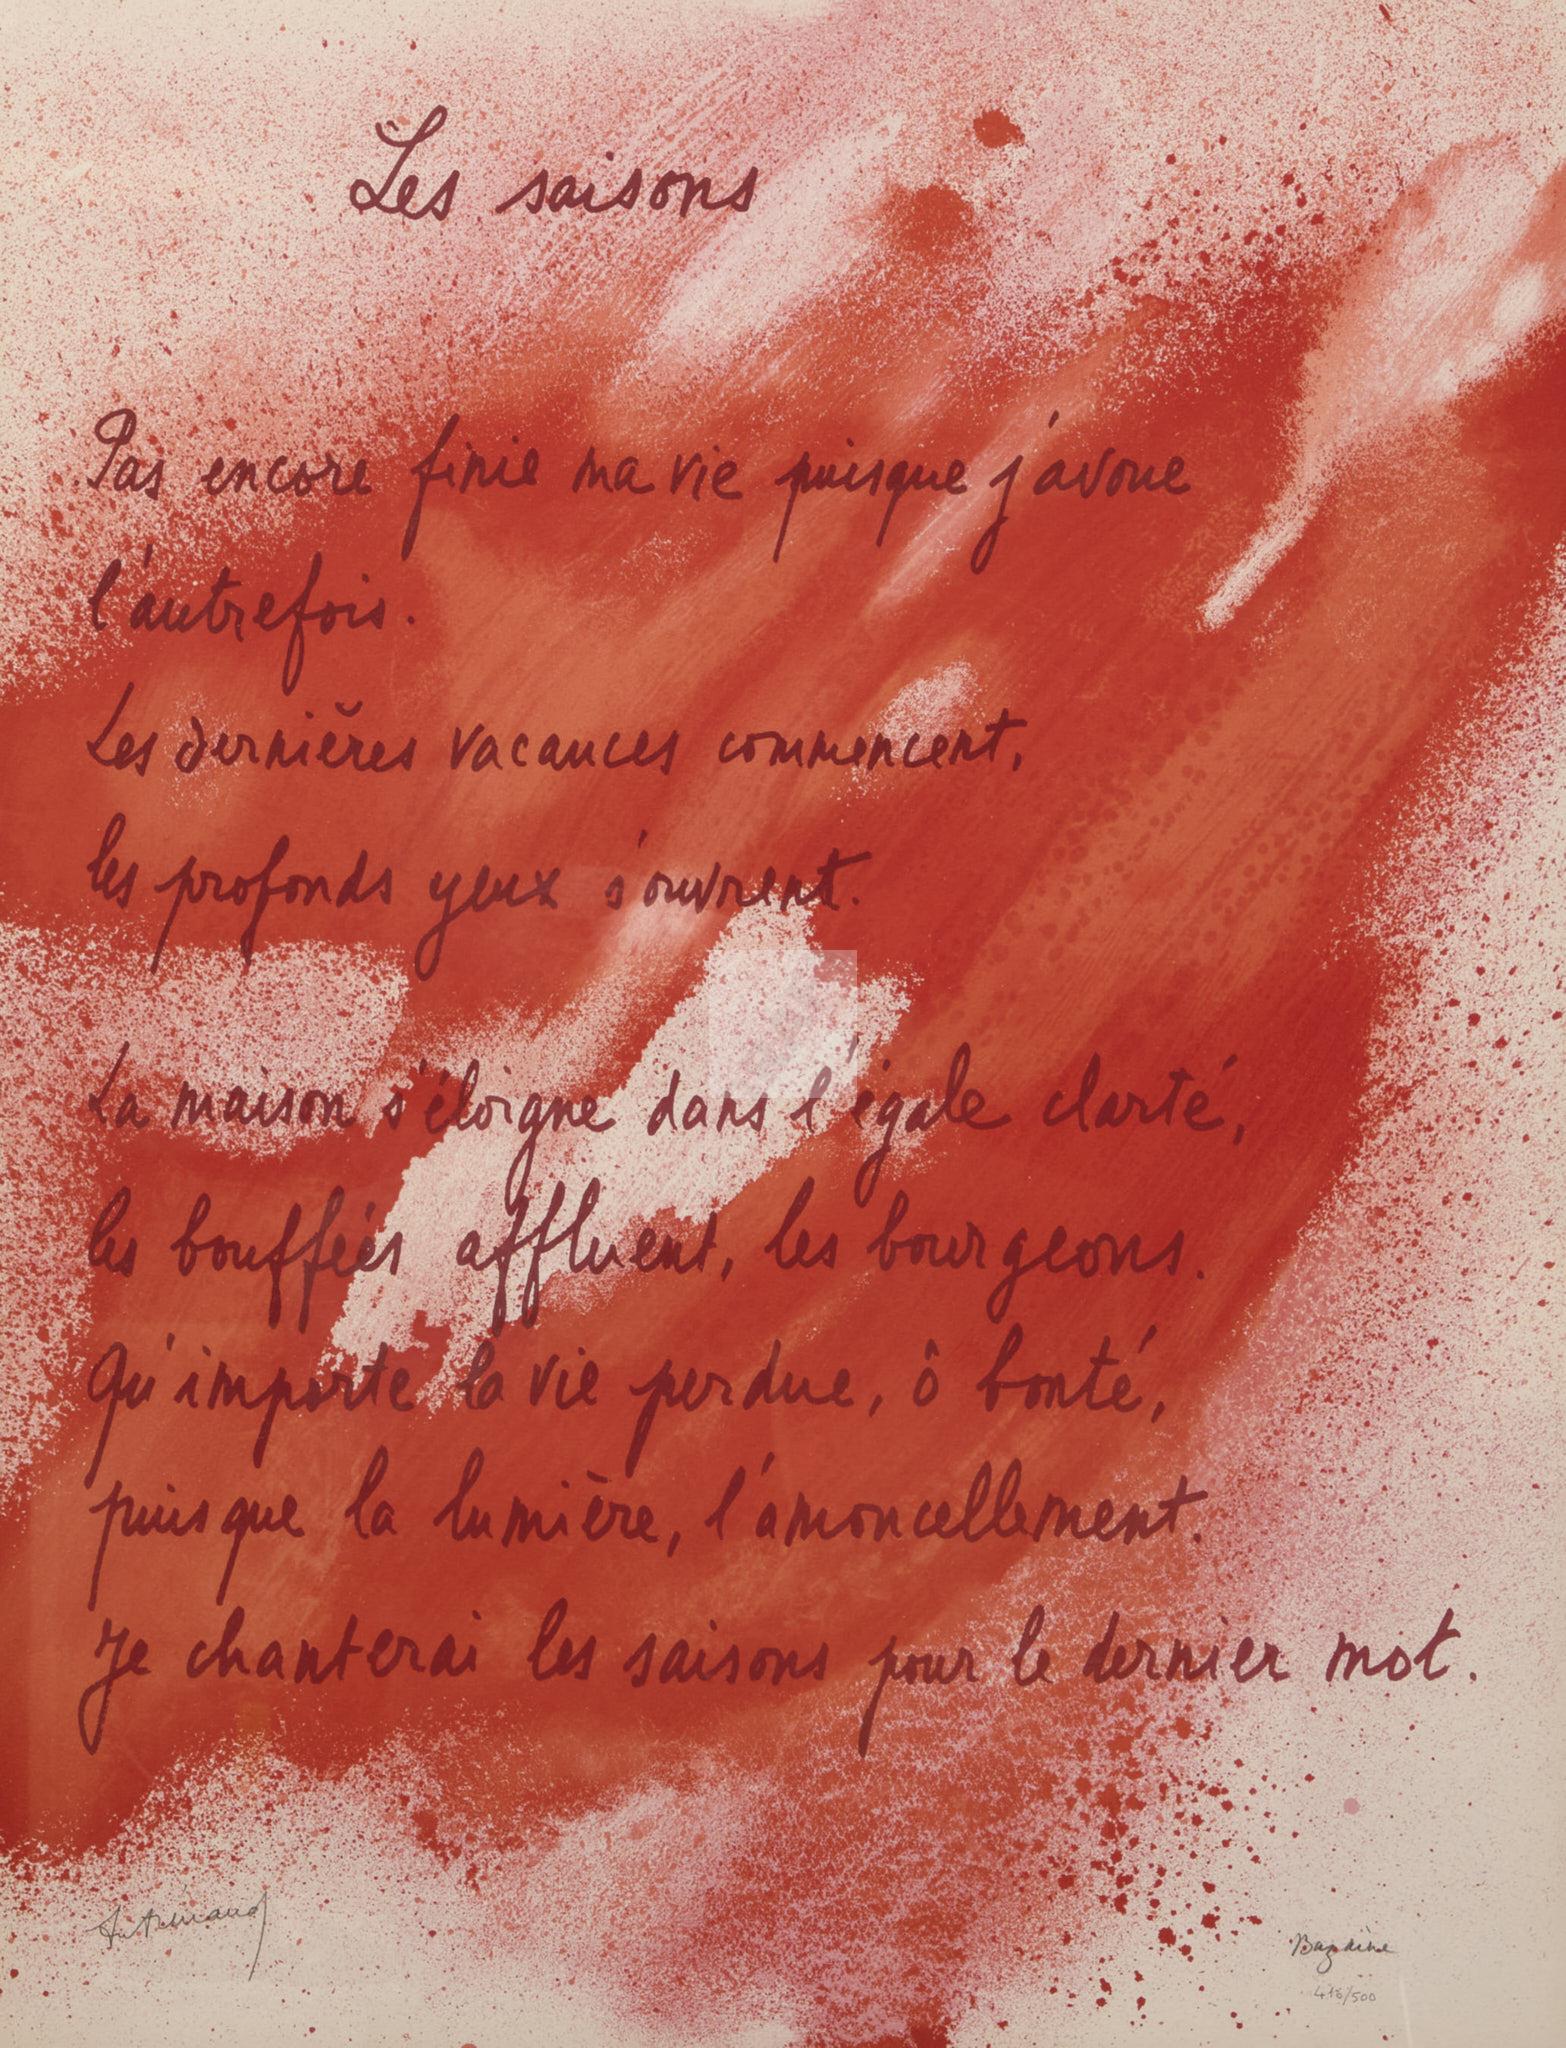 Les saisons
Pas encore finie ma vie puisque j'avoue
l'autrefois.
Les dernières vacances commencent,
les profonds yeux s'ouvrent.
La maison s'éloigne dans l'égale clarté,
les bouffées affluent, les bourgeons.
Qu'importe la vie perdue, ô bonté,
puisque la lumière, l'amoncellement.
Je chanterai les saisons pour le dernier mot.
Bazaine
/500